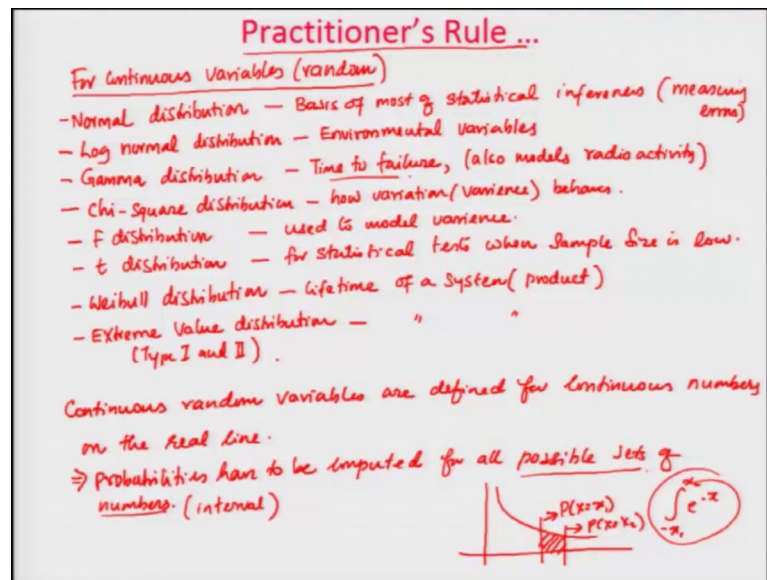 Practitioner's Rule ...
For Continuous Variables (random)
- Normal distribution - Basis of most of statistical inferences (measuring errors)
- Log normal distribution - Environmental variables
- Gamma distribution - Time to failure, (also models radio activity)
- Chi-Square distribution - how variation (varience) behaves.
- F distribution - used to model varience.
- t distribution - for statistical tests when Sample Size is low.
- Weibull distribution - Lifetime of a System (product)
- Extreme Value distribution - " "
(Type I and II).
Continuous random variables are defined for Continuous numbers
on the real line.
⇒ Probabilities have to be computed for all possible sets of
numbers. (interval)
P(x=x₁)
P(x=x₂)
∫ e⁻ˣ